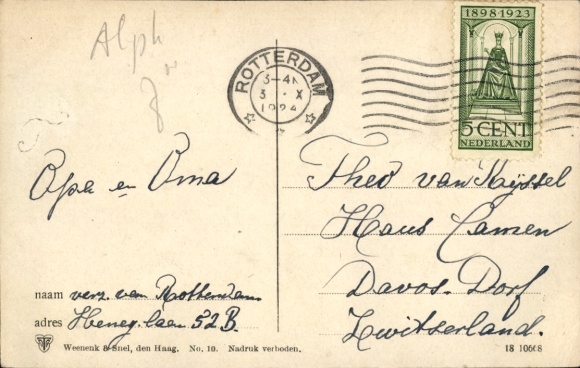 Alph
1898-1923
5 CENT
NEDERLAND
ROTTERDAM
3 X
1924
Opa en Oma
Theo van Kijssel
Haus Camen
Davos-Dorf
Zwitserland.
naam verz. van Rotterdam
adres Heneg. laan 52B.
Weenenk & Snel, den Haag. No. 10. Nadruk verboden.
18 10668